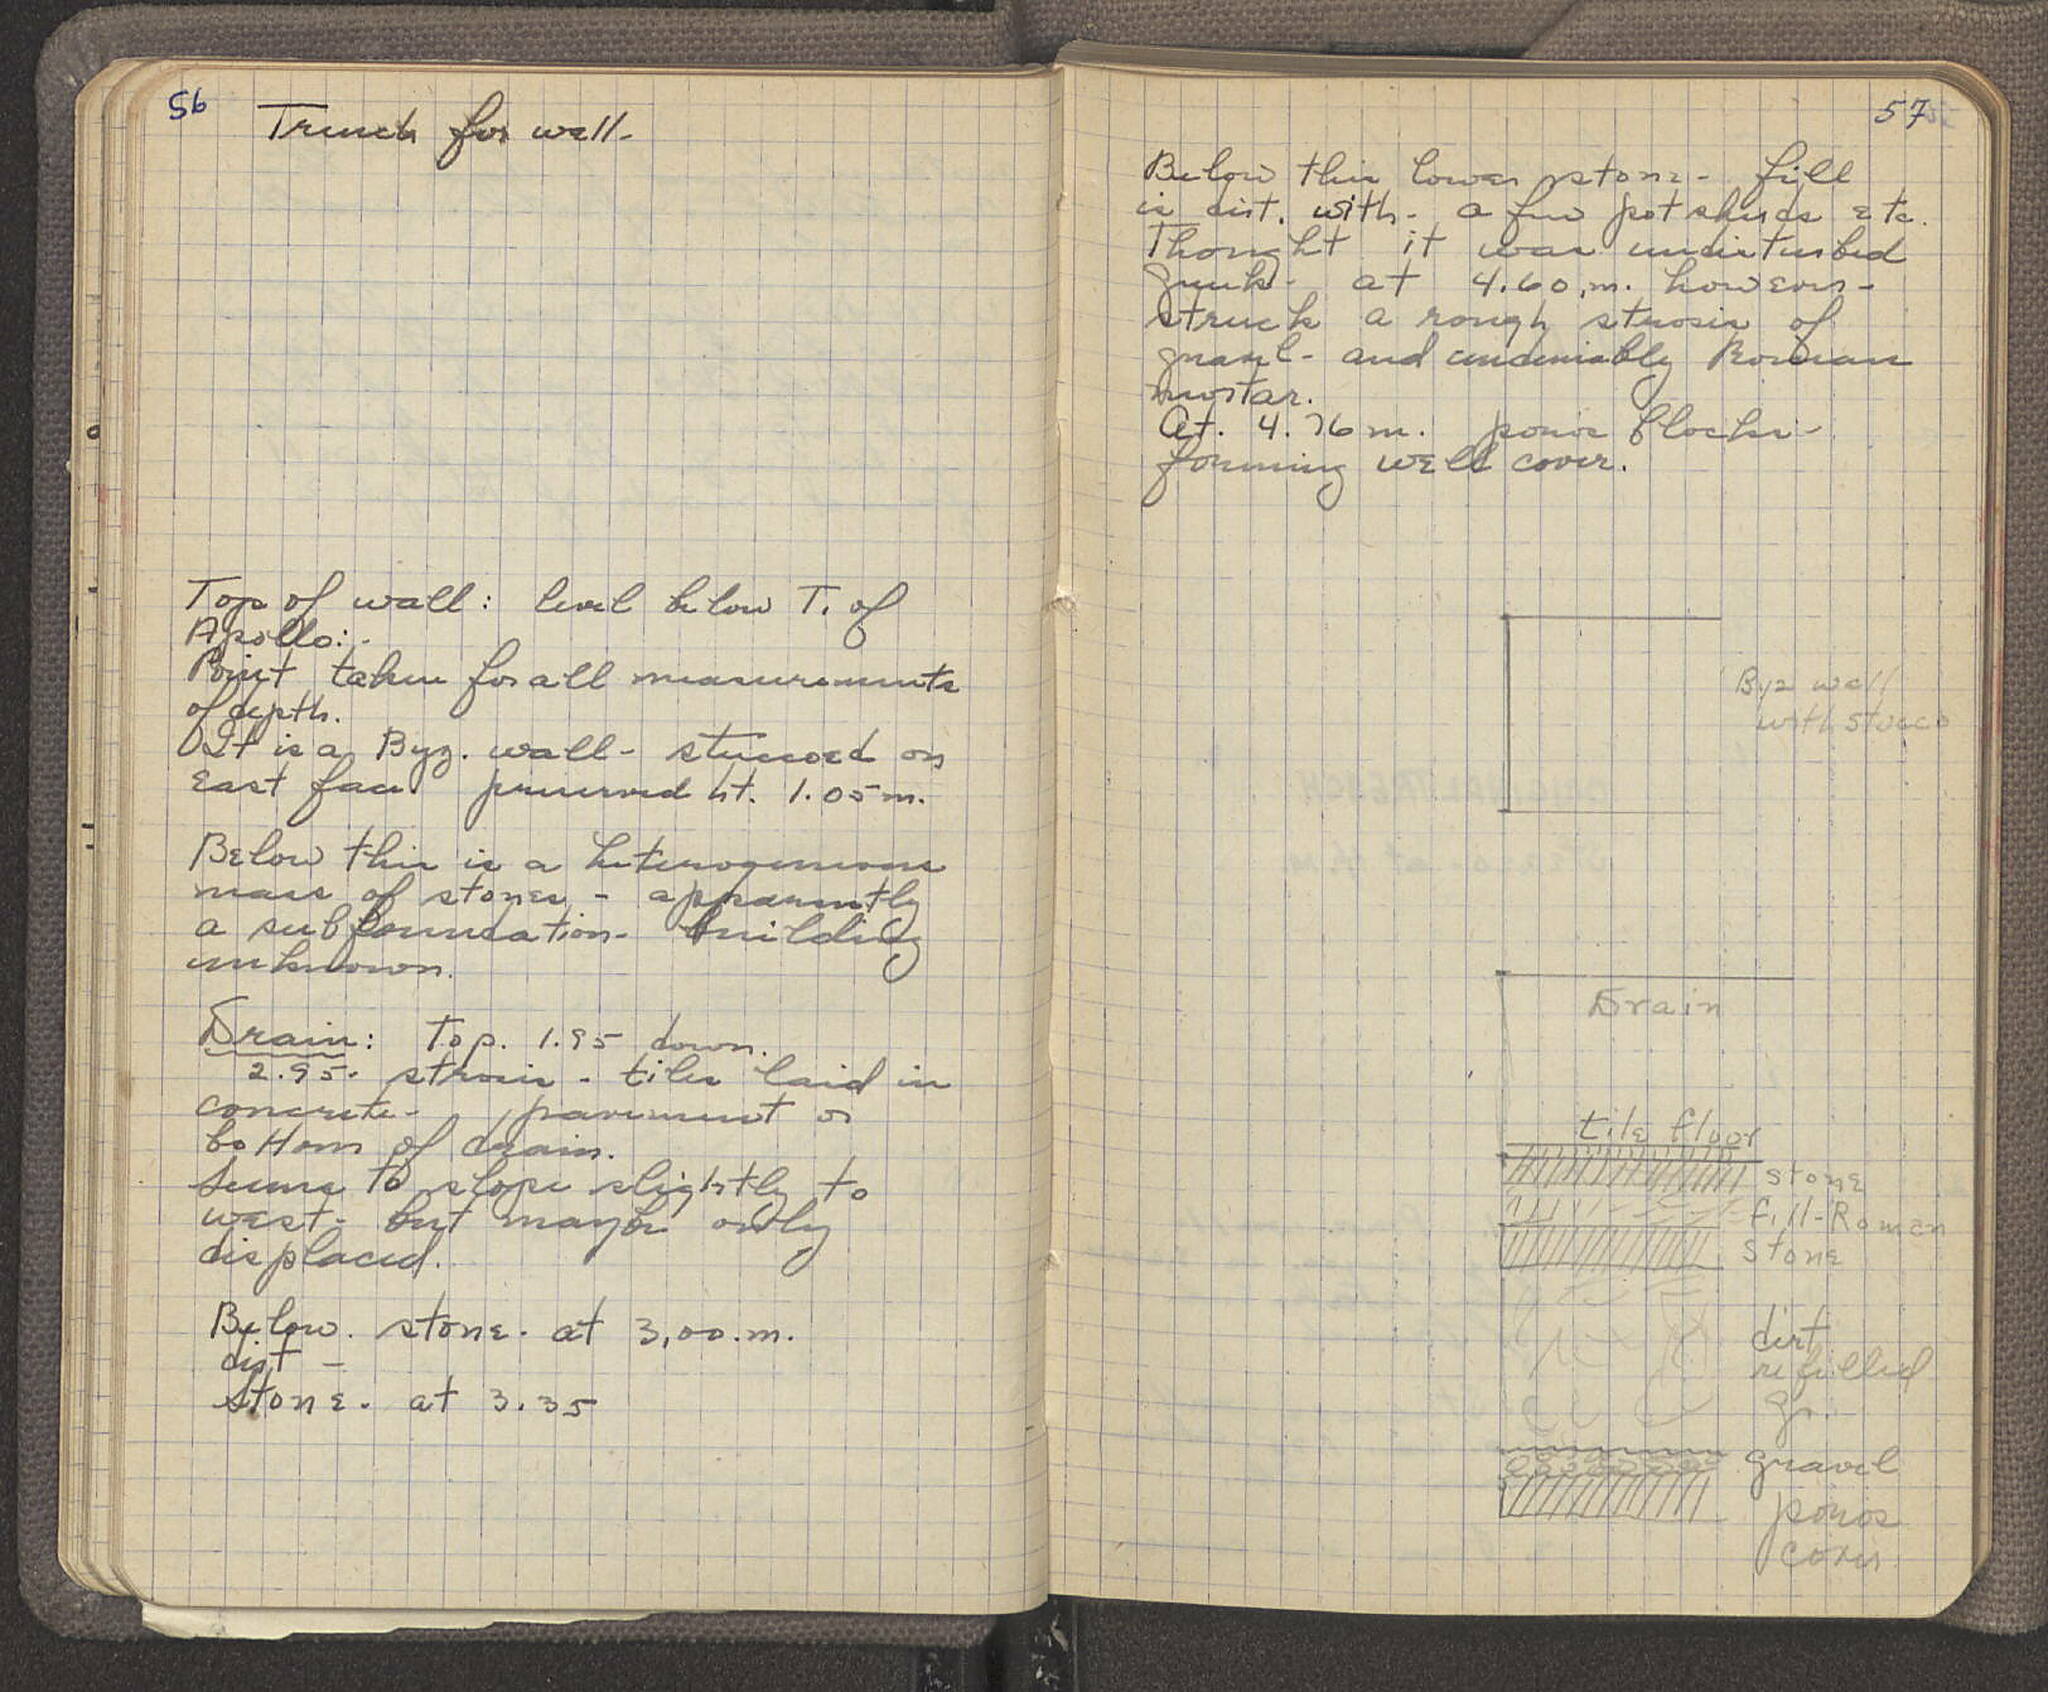 56
Trench for well-
Top of wall: level below T. of
Apollo:-
Point taken for all measurements
of depth.
It is a Byz. wall- stuccoed on
east face preserved ht. 1.05 m.
Below this is a heterogeneous
mass of stones - apparently
a subfoundation- building
unknown.
Drain: Top. 1.95 down.
2.95. strosis - tiles laid in
concrete- pavement or
bottom of drain.
Seems to slope slightly to
west- but maybe only
displaced.
Below. stone. at 3,00.m.
dirt -
Stone. at 3.35
57
Below this lower stone- fill
is dirt. with- a few potsherds etc.
Thought it was undisturbed
Greek- at 4.60.m. however-
struck a rough strosis of
gravel- and undeniably Roman
mortar.
At. 4.76 m. poros blocks-
forming well cover.
Byz wall
with stucco
Drain
tile floor
stone
fill-Roman
stone
dirt
refilled
gravel
poros
cover